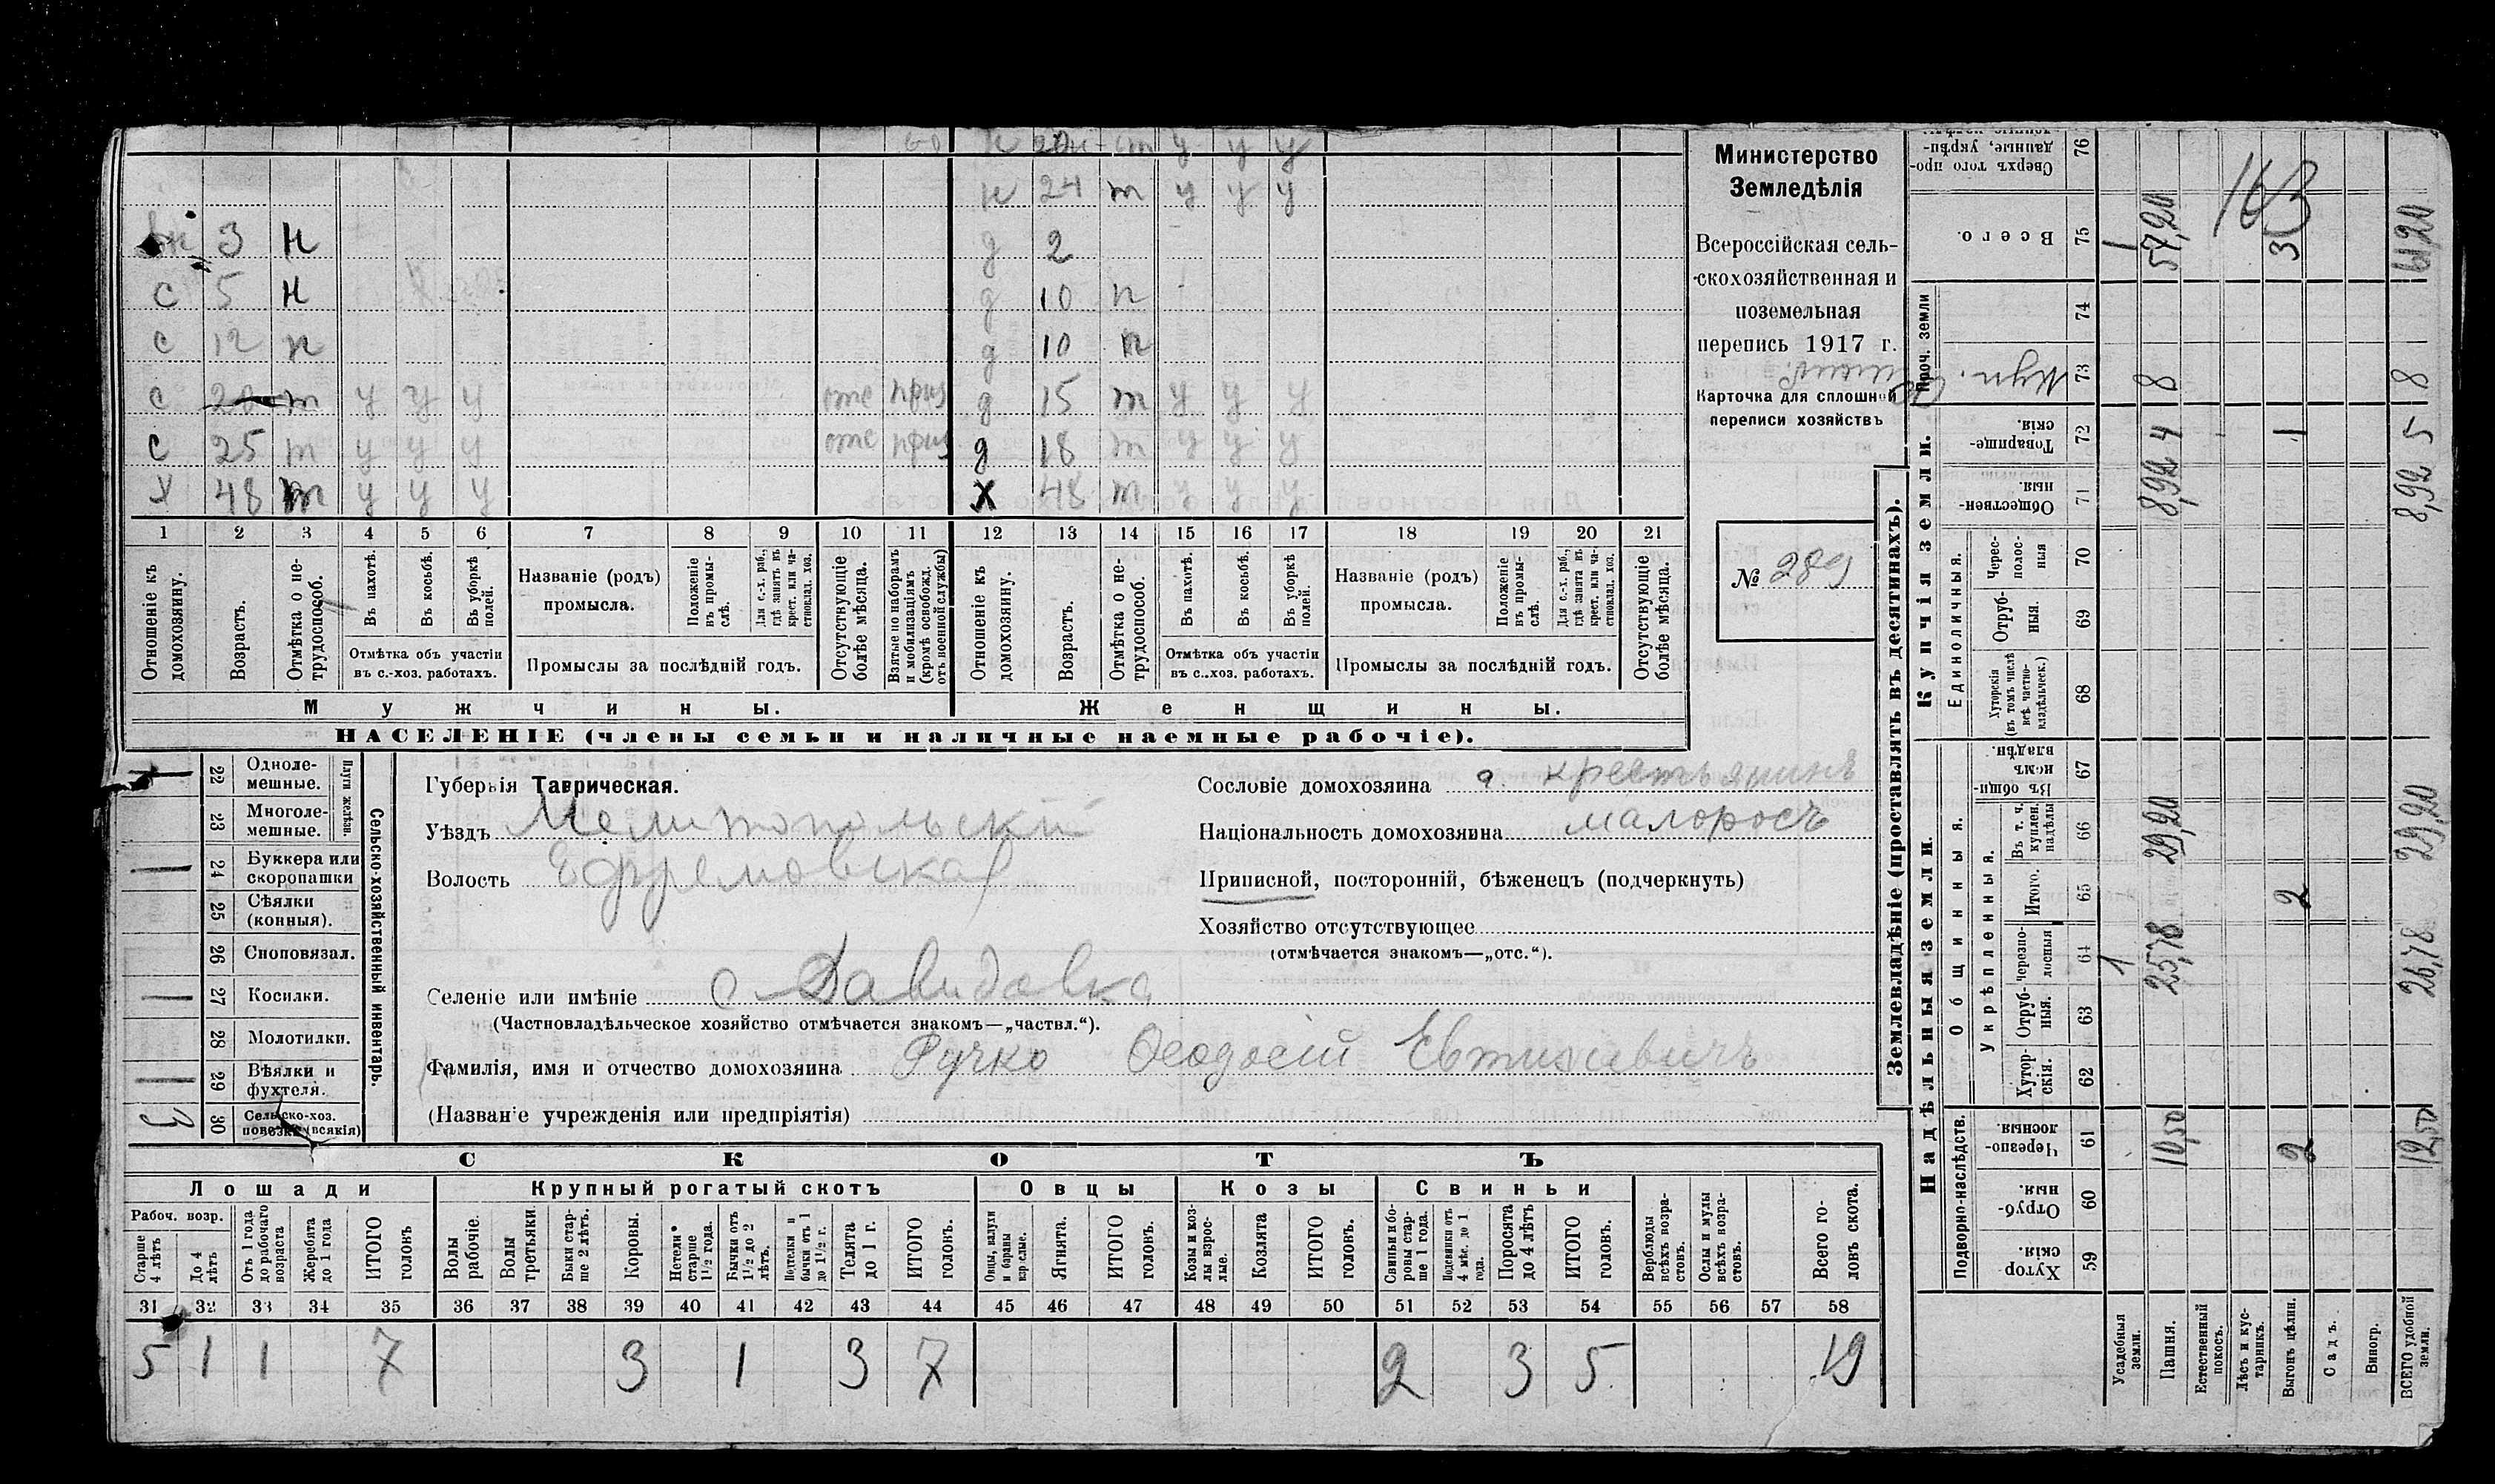 н 20 т у у у
н 24 т у у у
3 н д 2
с 5 н д 10 н
с 12 н д 10 н
с 20 т у у у отс приз д 15 т у у у
с 25 т у у у отс приз д 18 т у у у
х 48 т у у у х 48 т у у у
1 2 3 4 5 6 7 8 9 10 11 12 13 14 15 16 17 18 19 20 21
Отношеніе къ домохозяину.
Возрастъ.
Отмѣтка о не-
трудоспособ.
Въ пахотѣ.
Въ косьбѣ.
Въ уборкѣ
полей.
Отмѣтка объ участіи
въ с.-хоз. работахъ.
Названіе (родъ)
промысла.
Положеніе
въ промы-
слѣ.
Для с.-х. раб.,
гдѣ занятъ въ
крест. или ча-
стновлад. хоз.
Промыслы за послѣдній годъ.
Отсутствующіе
болѣе мѣсяца.
Взятые по наборамъ
и мобилизаціямъ
(кромѣ освобожд.
отъ военной службы)
Отношеніе къ
домохозяину.
Возрастъ.
Отмѣтка о не-
трудоспособ.
Въ пахотѣ.
Въ косьбѣ.
Въ уборкѣ
полей.
Отмѣтка объ участіи
въ с.-хоз. работахъ.
Названіе (родъ)
промысла.
Положеніе
въ промы-
слѣ.
Для с.-х. раб.,
гдѣ занята въ
крест. или ча-
стновлад. хоз.
Промыслы за послѣдній годъ.
Отсутствующіе
болѣе мѣсяца.
Мужчины. Женщины.
НАСЕЛЕНІЕ (члены семьи и наличные наемные рабочіе).
Министерство
Земледѣлія
Всероссійская сель-
скохозяйственная и
поземельная
перепись 1917 г.
Карточка для сплошной
переписи хозяйствъ
№ 289
22 Одноле-
мешные.
23 Многоле-
мешные.
Плуги желѣзн.
24 Буккера или
скоропашки
25 Сѣялки
(конныя).
26 Сноповязал.
27 Косилки.
28 Молотилки.
29 Вѣялки и
фухтеля.
3 30 Сельско-хоз.
повозки (всякія)
Сельско-хозяйственный инвентарь.
Губернія Таврическая.
Уѣздъ Мелитопольскій
Волость Ефремовская
Селеніе или имѣніе с Давидовка
(Частновладѣльческое хозяйство отмѣчается знакомъ—„частвл.“).
Фамилія, имя и отчество домохозяина Ручко Ѳеодосій Евтихіевичъ
(Названіе учрежденія или предпріятія)
Сословіе домохозяина крестьянинъ
Національность домохозяина малоросъ
Приписной, посторонній, бѣженецъ (подчеркнуть)
Хозяйство отсутствующее
(отмѣчается знакомъ—„отс.“).
СКОТЪ
Лошади Крупный рогатый скотъ Овцы Козы Свиньи
Рабоч. возр.
Старше
4 лѣтъ
До 4
лѣтъ
Отъ 1 года
до рабочаго
возраста
Жеребята
до 1 года
ИТОГО
головъ
Волы
рабочіе.
Волы
третьяки.
Быки стар-
ше 2 лѣтъ.
Коровы.
Нетели
старше
1½ года.
Бычки отъ
1½ до 2
лѣтъ.
Подтелки и
бычки отъ 1
до 1½ г.
Телята
до 1 г.
ИТОГО
головъ.
Овцы, валухи
и бараны
взрослые.
Ягнята.
ИТОГО
головъ.
Козы и коз-
лы взрос-
лые.
Козлята
ИТОГО
головъ.
Свиньи и бо-
ровы стар-
ше 1 года.
Подсвинки отъ
4 мѣс. до 1
года.
Поросята
до 4 лѣтъ
ИТОГО
головъ.
Верблюды
всѣхъ возра-
стовъ.
Ослы и мулы
всѣхъ возра-
стовъ.
Всего го-
ловъ скота.
31 32 33 34 35 36 37 38 39 40 41 42 43 44 45 46 47 48 49 50 51 52 53 54 55 56 57 58
5 1 1 7 3 1 3 7 2 3 5 19
Землевладѣніе (проставлять въ десятинахъ).
Надѣльныя земли. Купчія земли. Проч. земли
Подворно-наслѣдств. Общинныя. Единоличныя.
Укрѣпленныя.
59 Хутор-
скія.
60 Отруб-
ныя.
61 Черезпо-
лосныя.
62 Хутор-
скія.
63 Отруб-
ныя.
64 Черезпо-
лосныя
65 Итого.
66 Въ т. ч.
куплен.
надѣлы
67 Въ общи-
нномъ
владѣн.
68 Хуторскія
(въ томъ числѣ
всѣ частно-
владѣльческ.)
69 Отруб-
ныя.
70 Черес-
полос-
ныя
71 Обществен-
ныя.
72 Товарище-
скія.
73
74
75 Всего.
76 Сверхъ того про-
данные, укрѣп-
Усадебныя
земли.
1 1
Пашня.
10,50 25,78 29,20 8,92 4 8 57,20
Естественный
покосъ.
Лѣсъ и кус-
тарникъ.
Выгонъ цѣлин.
2 2 1 3
Садъ.
Виногр.
ВСЕГО удобной
земли.
12,50 26,78 29,20 8,92 5 8 61,20
163